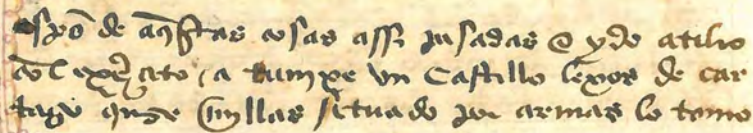 espō de aq̄stas cosas assi pasadas & ydo atilio
cōl exerçito, a tunize vn Castillo lexos de car
tago qinze millas situado por armas lo tomo